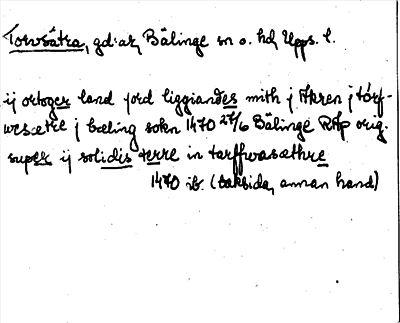 Torvsätra, gd:ar, Bälinge sn o. hd, Upps. l.
ij ortoger land jord liggiandes mith j Akren j törf-
wesætre j bæling sokn 1470 27/6 Bälinge RAp orig.
super ij solidis terre in tarffwasæthre
1470 ib. (baksida, annan hand)